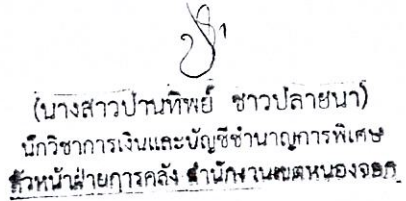 (นางสาวปานทิพย์ ชาวปลายนา)
นักวิชาการเงินและบัญชีชำนาญการพิเศษ
หัวหน้าฝ่ายการคลัง สำนักงานเขตหนองจอก